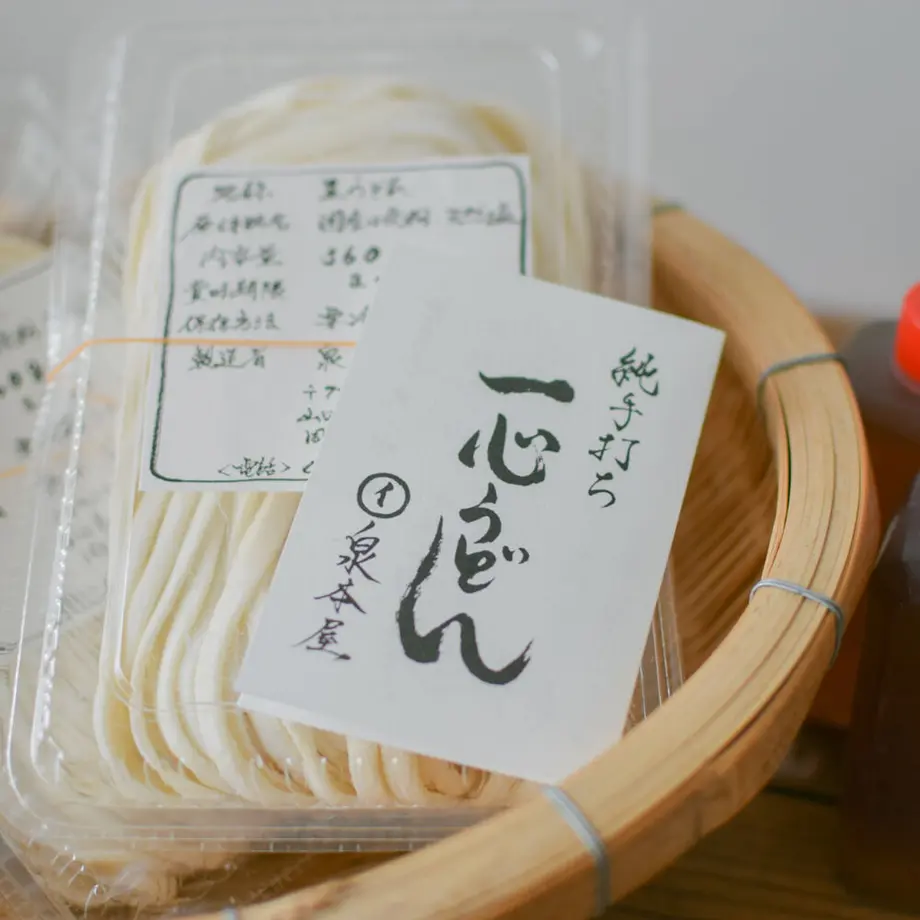 名称 生うどん
原材料名 国産小麦粉 天然塩
内容量 360
賞味期限
保存方法
製造者 泉
<電話>
純手打ち
一心うどん
イ
泉本屋